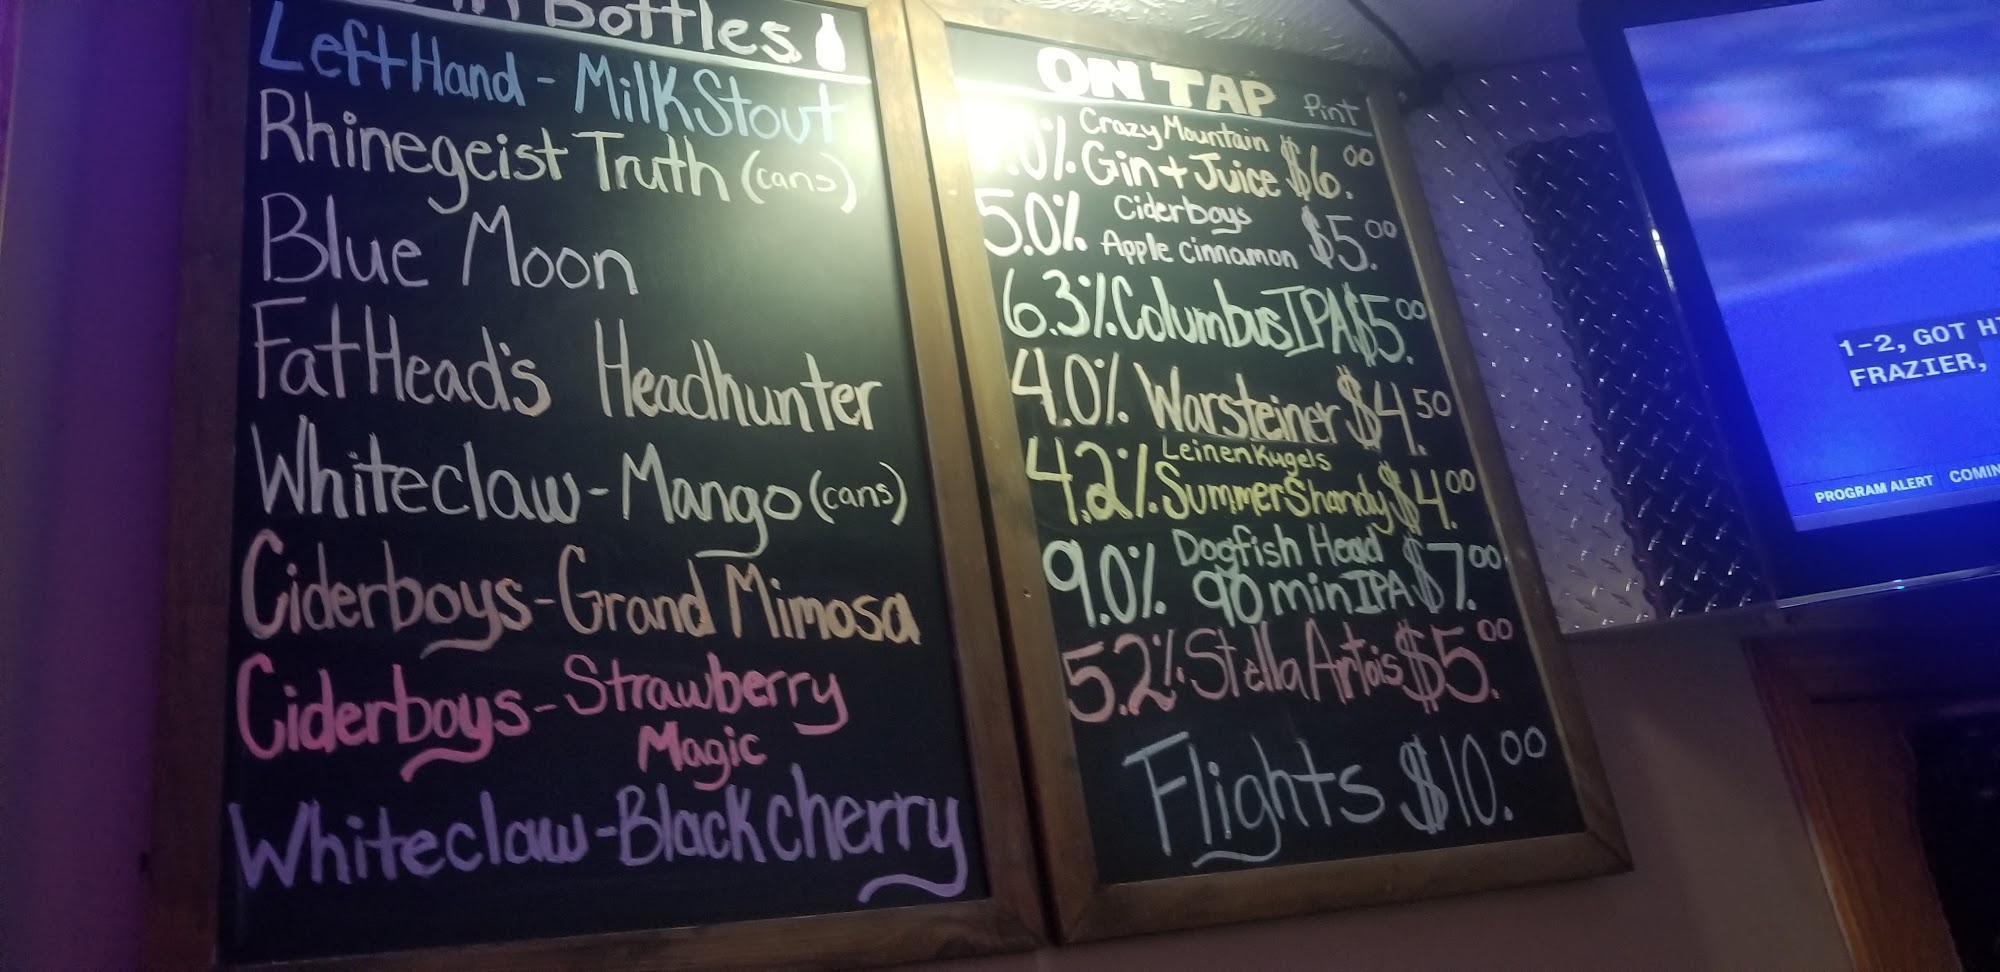 in Bottles
Left Hand - Milk Stout
Rhinegeist Truth (cans)
Blue Moon
FatHead's Headhunter
Whiteclaw - Mango (cans)
Ciderboys - Grand Mimosa
Ciderboys - Strawberry
Magic
Whiteclaw - Black cherry
ON TAP Pint
Crazy Mountain
Gin + Juice $6.00
5.0% Ciderboys
Apple Cinnamon $5.00
6.3% Columbus IPA $5.00
4.0% Warsteiner $4.50
Leinenkugels
4.2% Summer Shandy $4.00
Dogfish Head
9.0% 90 min IPA $7.00
5.2% Stella Artois $5.00
Flights $10.00
1-2, GOT
FRAZIER,
PROGRAM ALERT